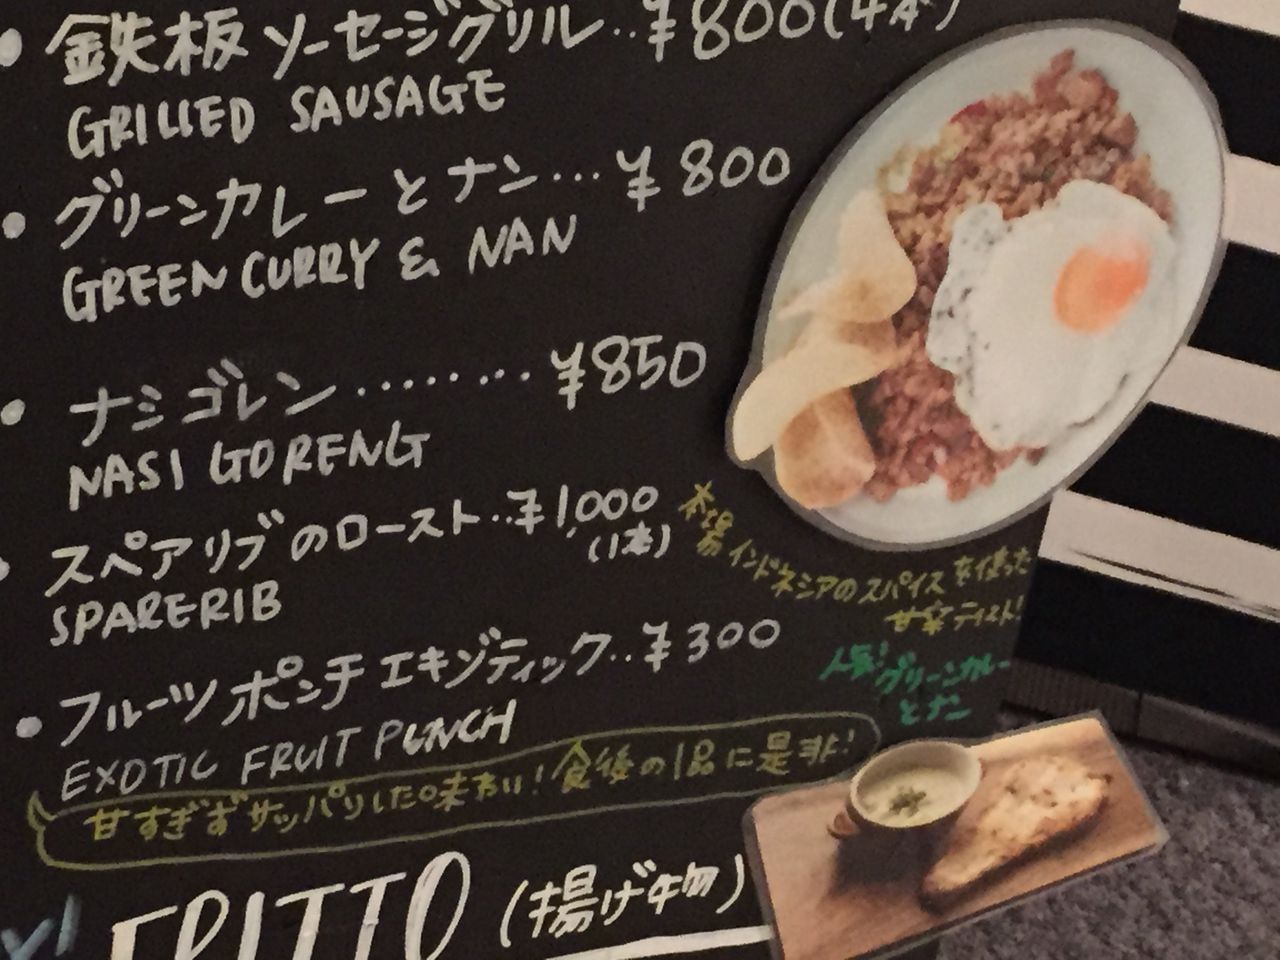 ・鉄板ソーセージグリル..¥800(4本)
GRILLED SAUSAGE
・グリーンカレーとナン...¥800
GREEN CURRY & NAN
・ナシゴレン........¥850
NASI GORENG
・スペアリブのロースト..¥1,000
(1本)
SPARERIB
本場インドネシアのスパイスを使った
甘辛テイスト!
・フルーツポンチエキゾティック..¥300
EXOTIC FRUIT PUNCH
人気!グリーンカレー
とナン
甘すぎずサッパリした味わい!食後の1品に是非!
FRITTO (揚げ物)